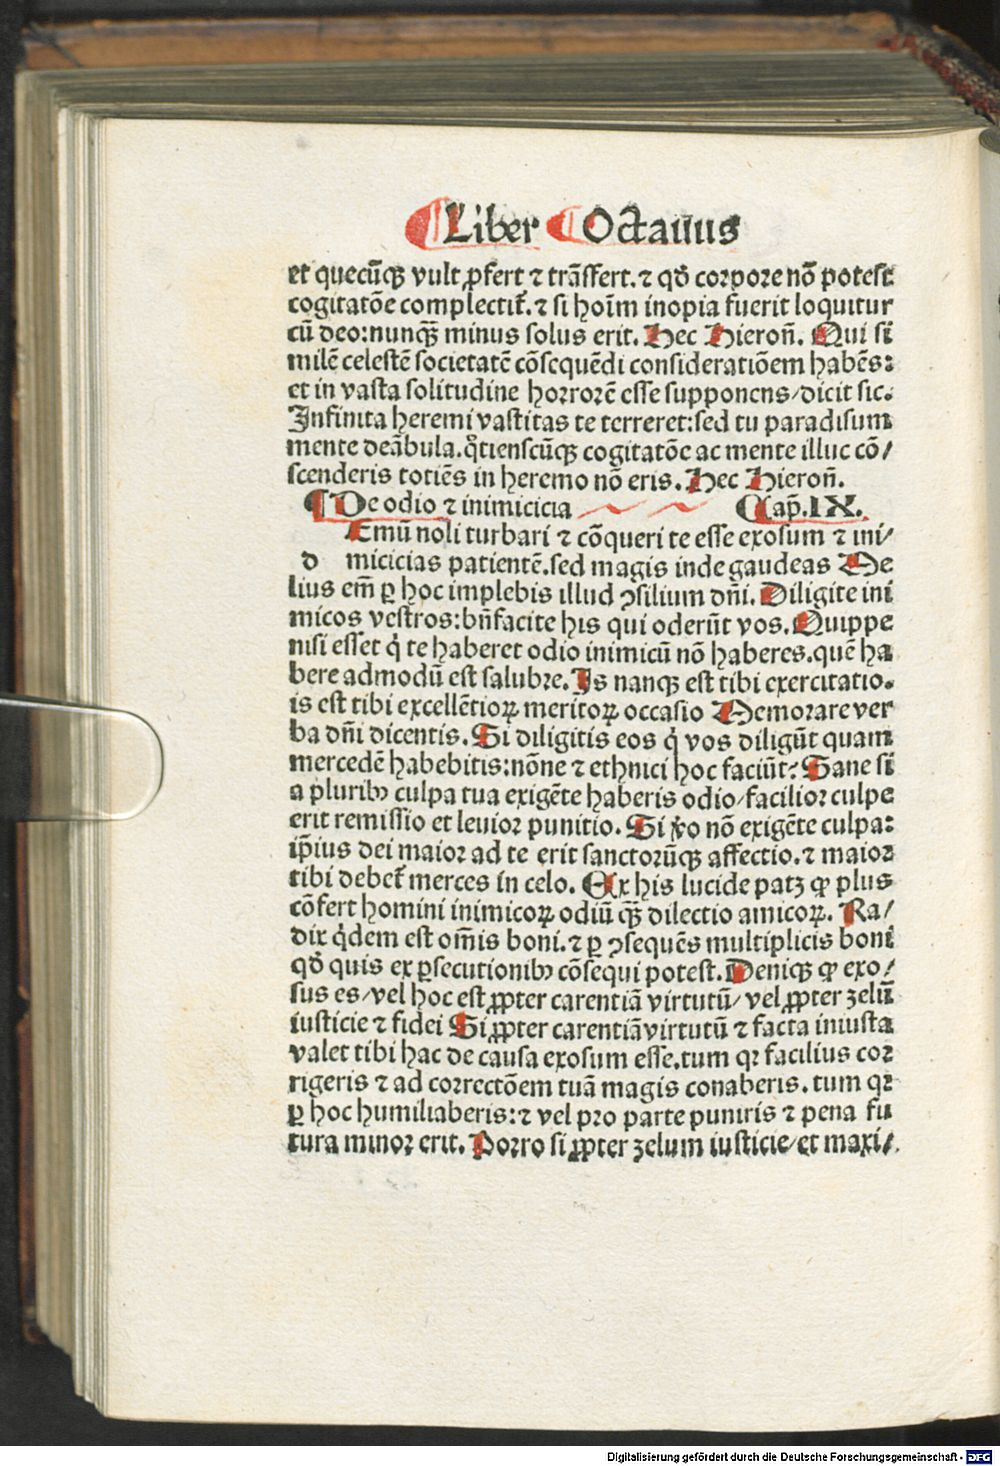 Liber Octauus
et quecũqꝫ vult ꝓfert ⁊ trãsfert.⁊ qđ corpore nõ potest
cogitatõe complectit̃.⁊ si hoĩm inopia fuerit loquitur
cũ deo:nunqꝫ̃ minus solus erit. Hec Hieroñ. Qui si
milẽ celestẽ societatẽ cõsequẽdi consideratiõem habẽs:
et in vasta solitudine horrorẽ esse supponens/dicit sic.
Infinita heremi vastitas te terreret:sed tu paradisum
mente deãbula.q̊tienscũqꝫ cogitatõe ac mente illuc cõ/
scenderis totiẽs in heremo nõ eris. Hec Hieroñ.
De odio ⁊ inimicicia Cap̃.IX.
Emũ noli turbari ⁊ cõqueri te esse exosum ⁊ ini/
d micicias patientẽ.sed magis inde gaudeas Me
lius em̃ ꝑ hoc implebis illud ꝯsilium dñi. Diligite ini
micos vestros:bñfacite his qui oderũt vos. Quippe
nisi esset q̇ te haberet odio inimicũ nõ haberes.quẽ ha
bere admodũ est salubre. Is nanqꝫ est tibi exercitatio.
is est tibi excellẽtioꝝ meritoꝝ occasio Memorare ver
ba dñi dicentis. Si diligitis eos q̇ vos diligũt quam
mercedẽ habebitis:nõne ⁊ ethnici hoc faciũt? Sane si
a pluribꝰ culpa tua exigẽte haberis odio/facilior culpe
erit remissio et leuior punitio. Si ṽo nõ exigẽte culpa:
ip̃ius dei maior ad te erit sanctorũqꝫ affectio.⁊ maior
tibi debet̃ merces in celo. Ex his lucide patꝫ ꝙ plus
cõfert homini inimicoꝝ odiũ qꝫ̃ dilectio amicoꝝ. Ra/
dix q̇dem est om̃is boni.⁊ ꝑ ꝯsequẽs multiplicis boni
qđ quis ex ꝑsecutionibꝰ cõsequi potest. Deniqꝫ ꝙ exo/
sus es/vel hoc est ꝓpter carentiã virtutũ/vel ꝓpter zelũ
iusticie ⁊ fidei Si ꝓpter carentiã virtutũ ⁊ facta iniusta
valet tibi hac de causa exosum esse.tum qꝛ facilius cor
rigeris ⁊ ad correctõem tuã magis conaberis.tum qꝛ
ꝑ hoc humiliaberis:⁊ vel pro parte puniris ⁊ pena fu
tura minor erit. Porro si ꝓpter zelum iusticie/et maxi/
Digitalisierung gefördert durch die Deutsche Forschungsgemeinschaft - DFG